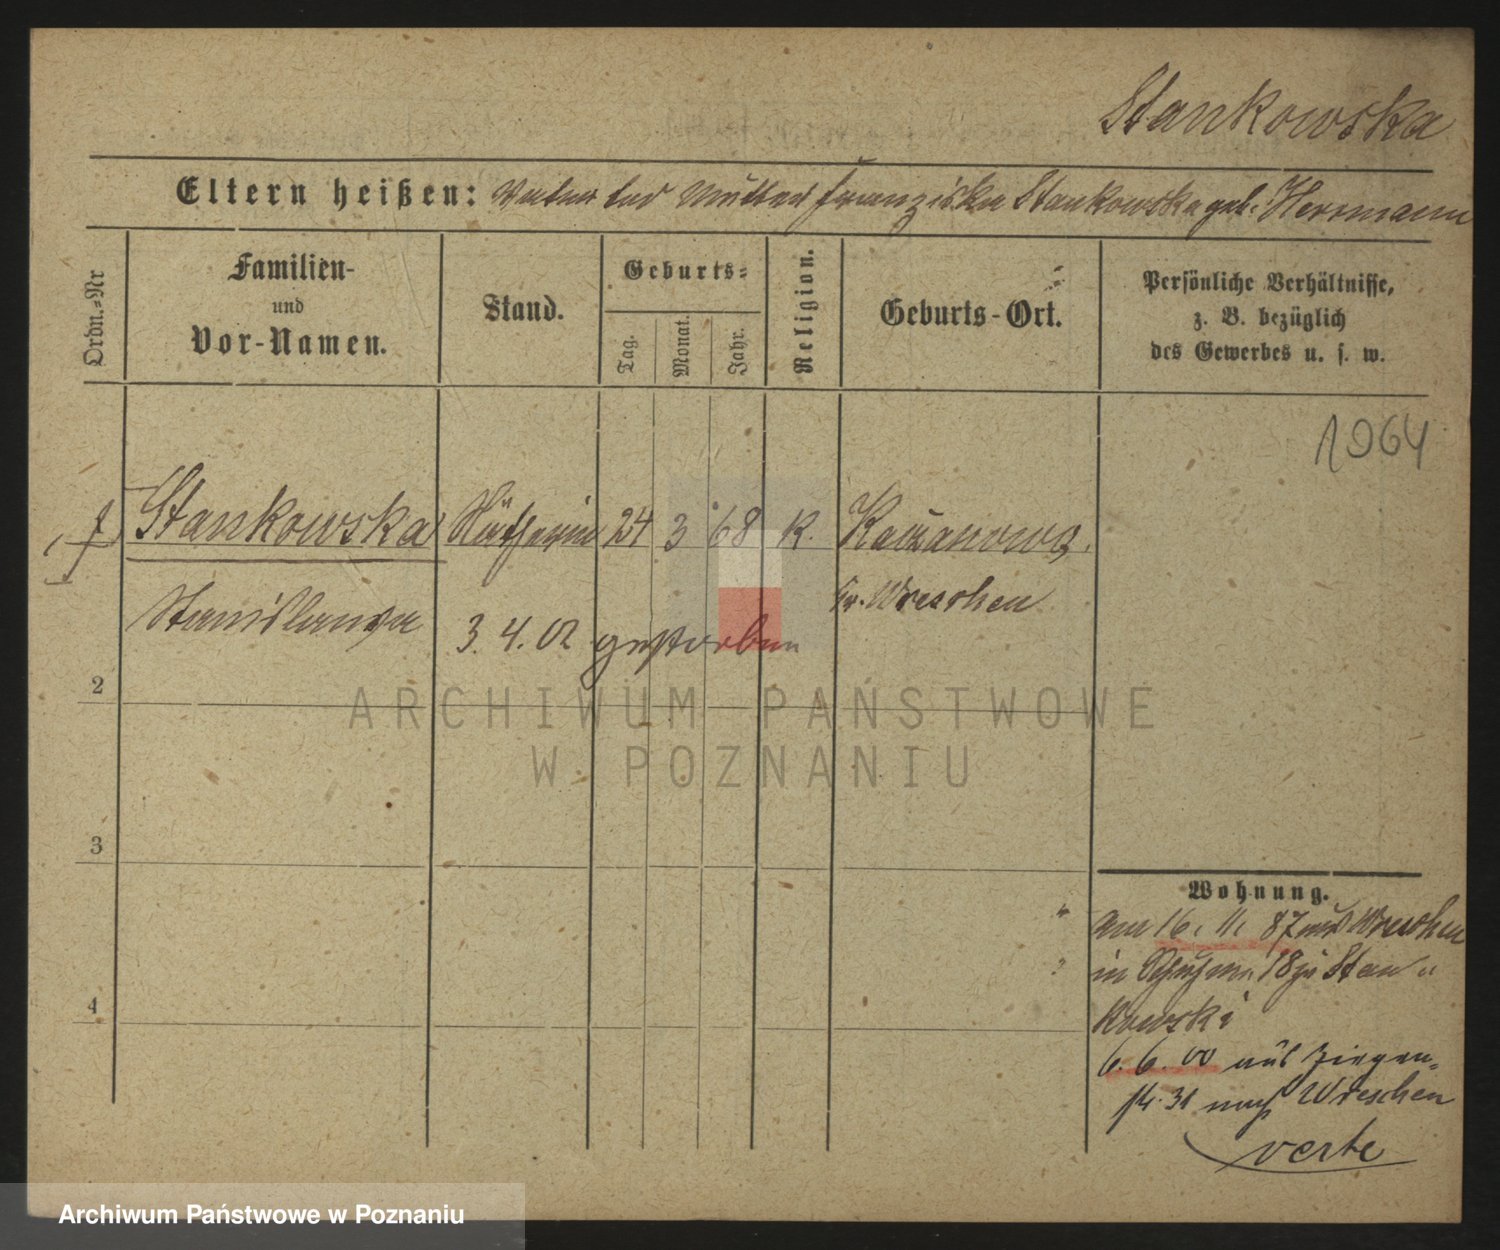 Stankowska
Eltern heißen: Vater tod Mutter Franziska Stankowska geb. Hermann
Ordn.-Nr
Familien-
und
Vor-Namen.
Stand.
Geburts-
Tag.
Monat.
Jahr.
Religion.
Geburts-Ort.
Persönliche Verhältnisse,
z. B. bezüglich
des Gewerbes u. s. w.
1964
Stankowska Nätherin 24 3 68 K.
Kr. Wreschen
Stanislawa
3. 4. 02 gestorben
2
3
4
Wohnung.
am 16. 11. 87 aus Wreschen
in 18 zu Stan
kowski
6. 6. 00 aus Ziegen-
st. 31 nach Wreschen
verte
ARCHIWUM PAŃSTWOWE
W POZNANIU
Archiwum Państwowe w Poznaniu